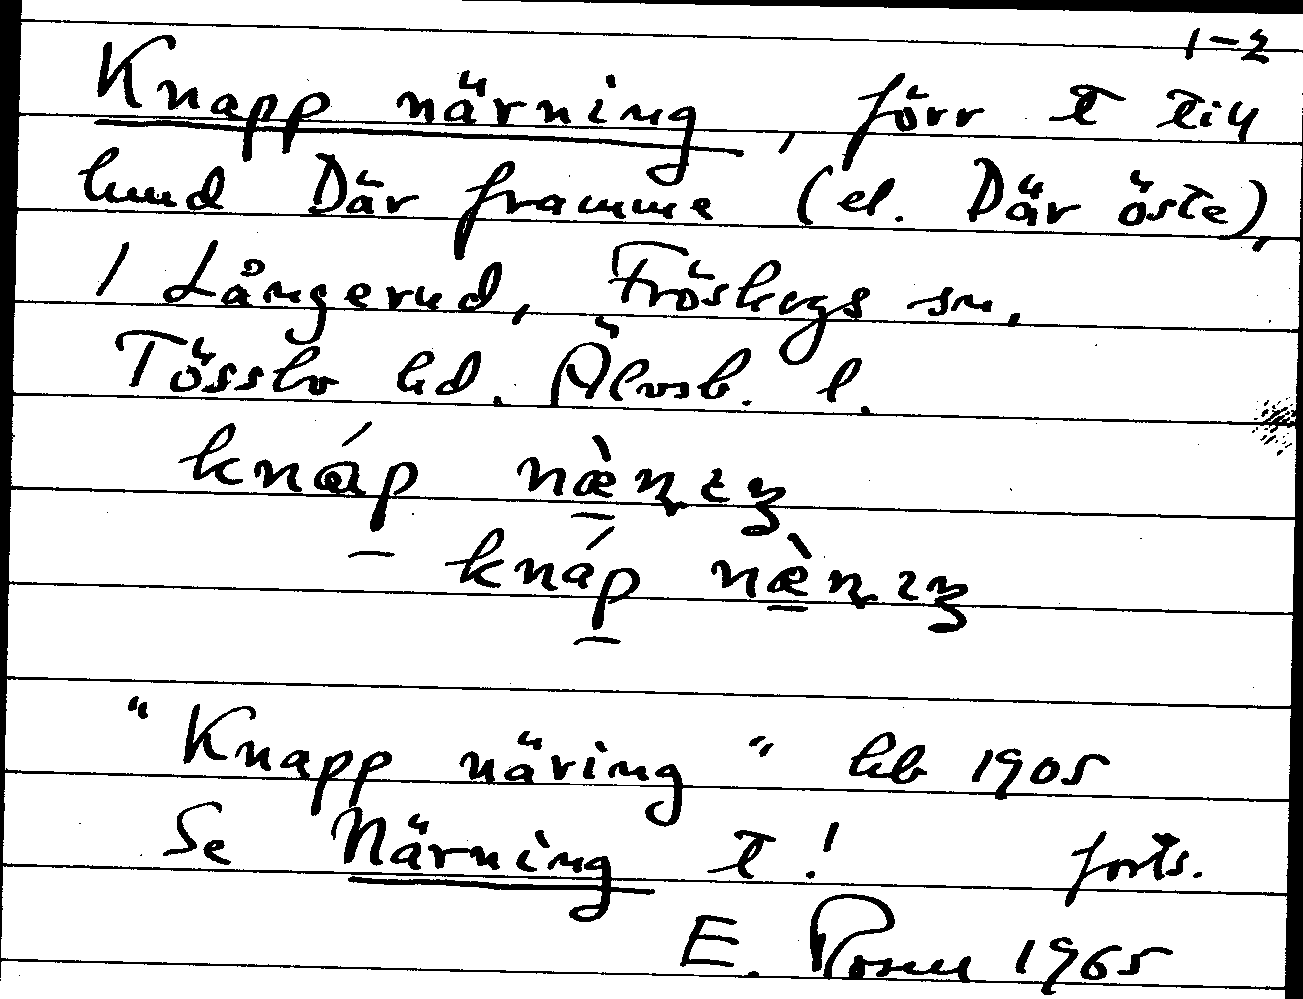 1-2
Knapp närning, förr t till
hund Där framme (el. Där öste),
1 Långerud, Fröskogs sn.
Tössbo hd. Älvsb. l.
knáp næ̀nıŋ
knáp næ̀nıŋ
"Knapp näring" hb 1905
Se Närning t! forts.
E. Rosell 1965